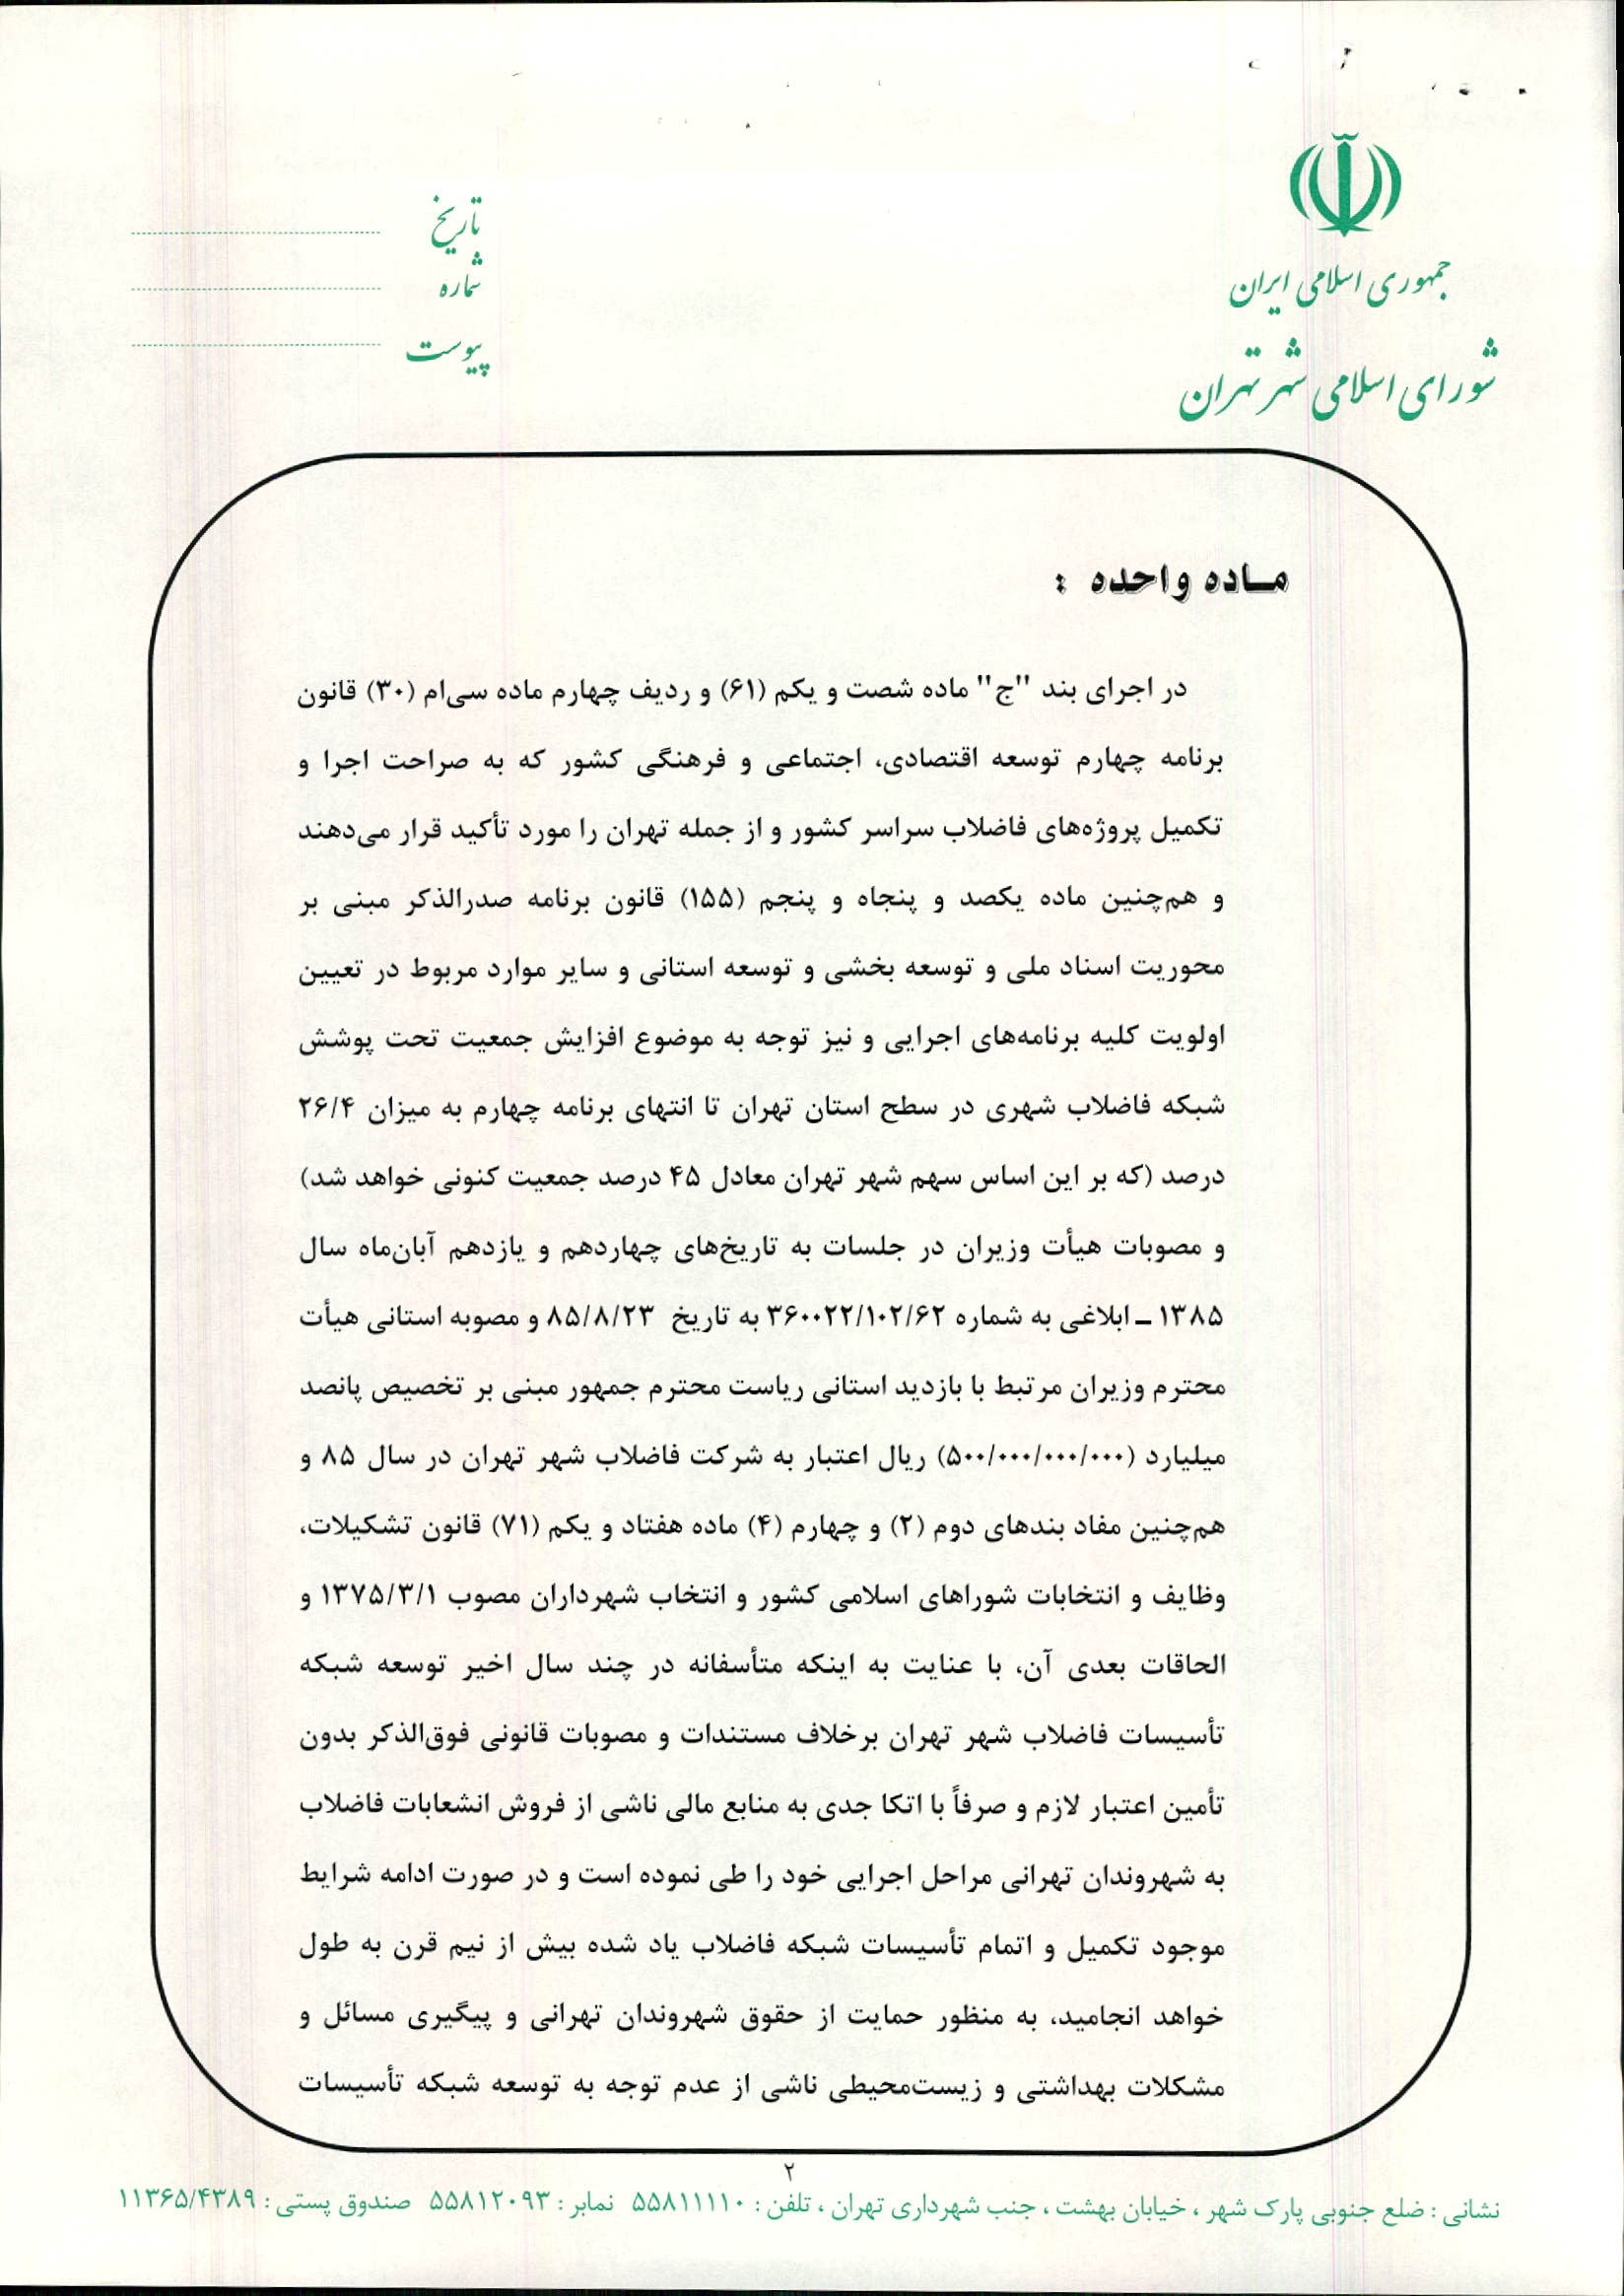 جمهوری اسلامی ایران
شورای اسلامی شهر تهران
تاریخ
شماره
پیوست
ماده واحده :
در اجرای بند "ج" ماده شصت و یکم (۶۱) و ردیف چهارم ماده سی‌ام (۳۰) قانون
برنامه چهارم توسعه اقتصادی، اجتماعی و فرهنگی کشور که به صراحت اجرا و
تکمیل پروژه‌های فاضلاب سراسر کشور و از جمله تهران را مورد تأکید قرار می‌دهند
و هم‌چنین ماده یکصد و پنجاه و پنجم (۱۵۵) قانون برنامه صدرالذکر مبنی بر
محوریت اسناد ملی و توسعه بخشی و توسعه استانی و سایر موارد مربوط در تعیین
اولویت کلیه برنامه‌های اجرایی و نیز توجه به موضوع افزایش جمعیت تحت پوشش
شبکه فاضلاب شهری در سطح استان تهران تا انتهای برنامه چهارم به میزان ۲۶/۴
درصد (که بر این اساس سهم شهر تهران معادل ۴۵ درصد جمعیت کنونی خواهد شد)
و مصوبات هیأت وزیران در جلسات به تاریخ‌های چهاردهم و یازدهم آبان‌ماه سال
۱۳۸۵ ـ ابلاغی به شماره ۳۶۰۰۲۲/۱۰۲/۶۲ به تاریخ ۸۵/۸/۲۳ و مصوبه استانی هیأت
محترم وزیران مرتبط با بازدید استانی ریاست محترم جمهور مبنی بر تخصیص پانصد
میلیارد (۵۰۰/۰۰۰/۰۰۰/۰۰۰) ریال اعتبار به شرکت فاضلاب شهر تهران در سال ۸۵ و
هم‌چنین مفاد بندهای دوم (۲) و چهارم (۴) ماده هفتاد و یکم (۷۱) قانون تشکیلات،
وظایف و انتخابات شوراهای اسلامی کشور و انتخاب شهرداران مصوب ۱۳۷۵/۳/۱ و
الحاقات بعدی آن، با عنایت به اینکه متأسفانه در چند سال اخیر توسعه شبکه
تأسیسات فاضلاب شهر تهران برخلاف مستندات و مصوبات قانونی فوق‌الذکر بدون
تأمین اعتبار لازم و صرفاً با اتکا جدی به منابع مالی ناشی از فروش انشعابات فاضلاب
به شهروندان تهرانی مراحل اجرایی خود را طی نموده است و در صورت ادامه شرایط
موجود تکمیل و اتمام تأسیسات شبکه فاضلاب یاد شده بیش از نیم قرن به طول
خواهد انجامید، به منظور حمایت از حقوق شهروندان تهرانی و پیگیری مسائل و
مشکلات بهداشتی و زیست‌محیطی ناشی از عدم توجه به توسعه شبکه تأسیسات
۲
نشانی : ضلع جنوبی پارک شهر ، خیابان بهشت ، جنب شهرداری تهران ، تلفن : ۵۵۸۱۱۱۱۰ نمابر : ۵۵۸۱۲۰۹۳ صندوق پستی : ۱۱۳۶۵/۴۳۸۹